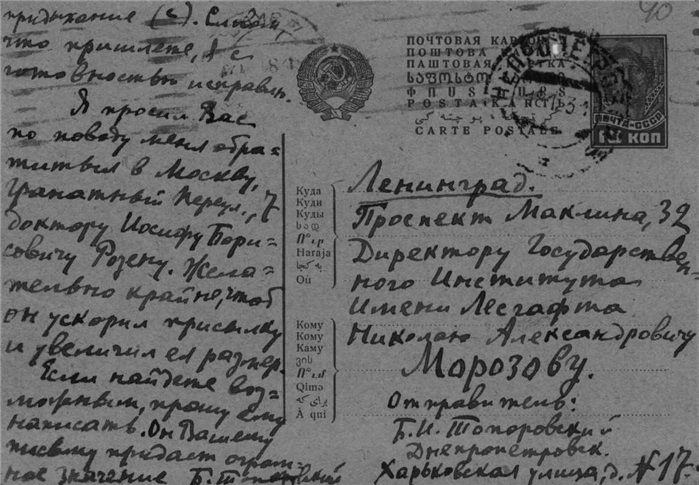 придыхание (с). Если
что пришлете, я с
готовностью исправлю.
Я просил Вас
по поводу меня обра-
титься в Москву,
Гранатный Переул., 7
доктору Иосифу Бори-
совичу Розену. Жела-
тельно крайно, чтоб
он ускорил присылку
и увеличил ея размер.
Если найдете воз-
можным, прошу ему
написать. Он Вашему
письму придаст огром-
ное значение Б. Топоровский
40
ПОЧТОВАЯ КАРТОЧКА
ПОШТОВА
ПАШТОВАЯ КАРТКА
CARTE POSTALE
ПОЧТА СССР
КОП
Куда
Куди
Куды
Haraja
Où
Кому
Кому
Каму
Qimə
À qui
Ленинград.
Проспект Маклина, 32
Директору Государствен-
ного Института
имени Лесгафта
Николаю Александровичу
Морозову.
Отправитель:
Б. И. Топоровский
Днепропетровск.
Харьковская улица, д. № 17-